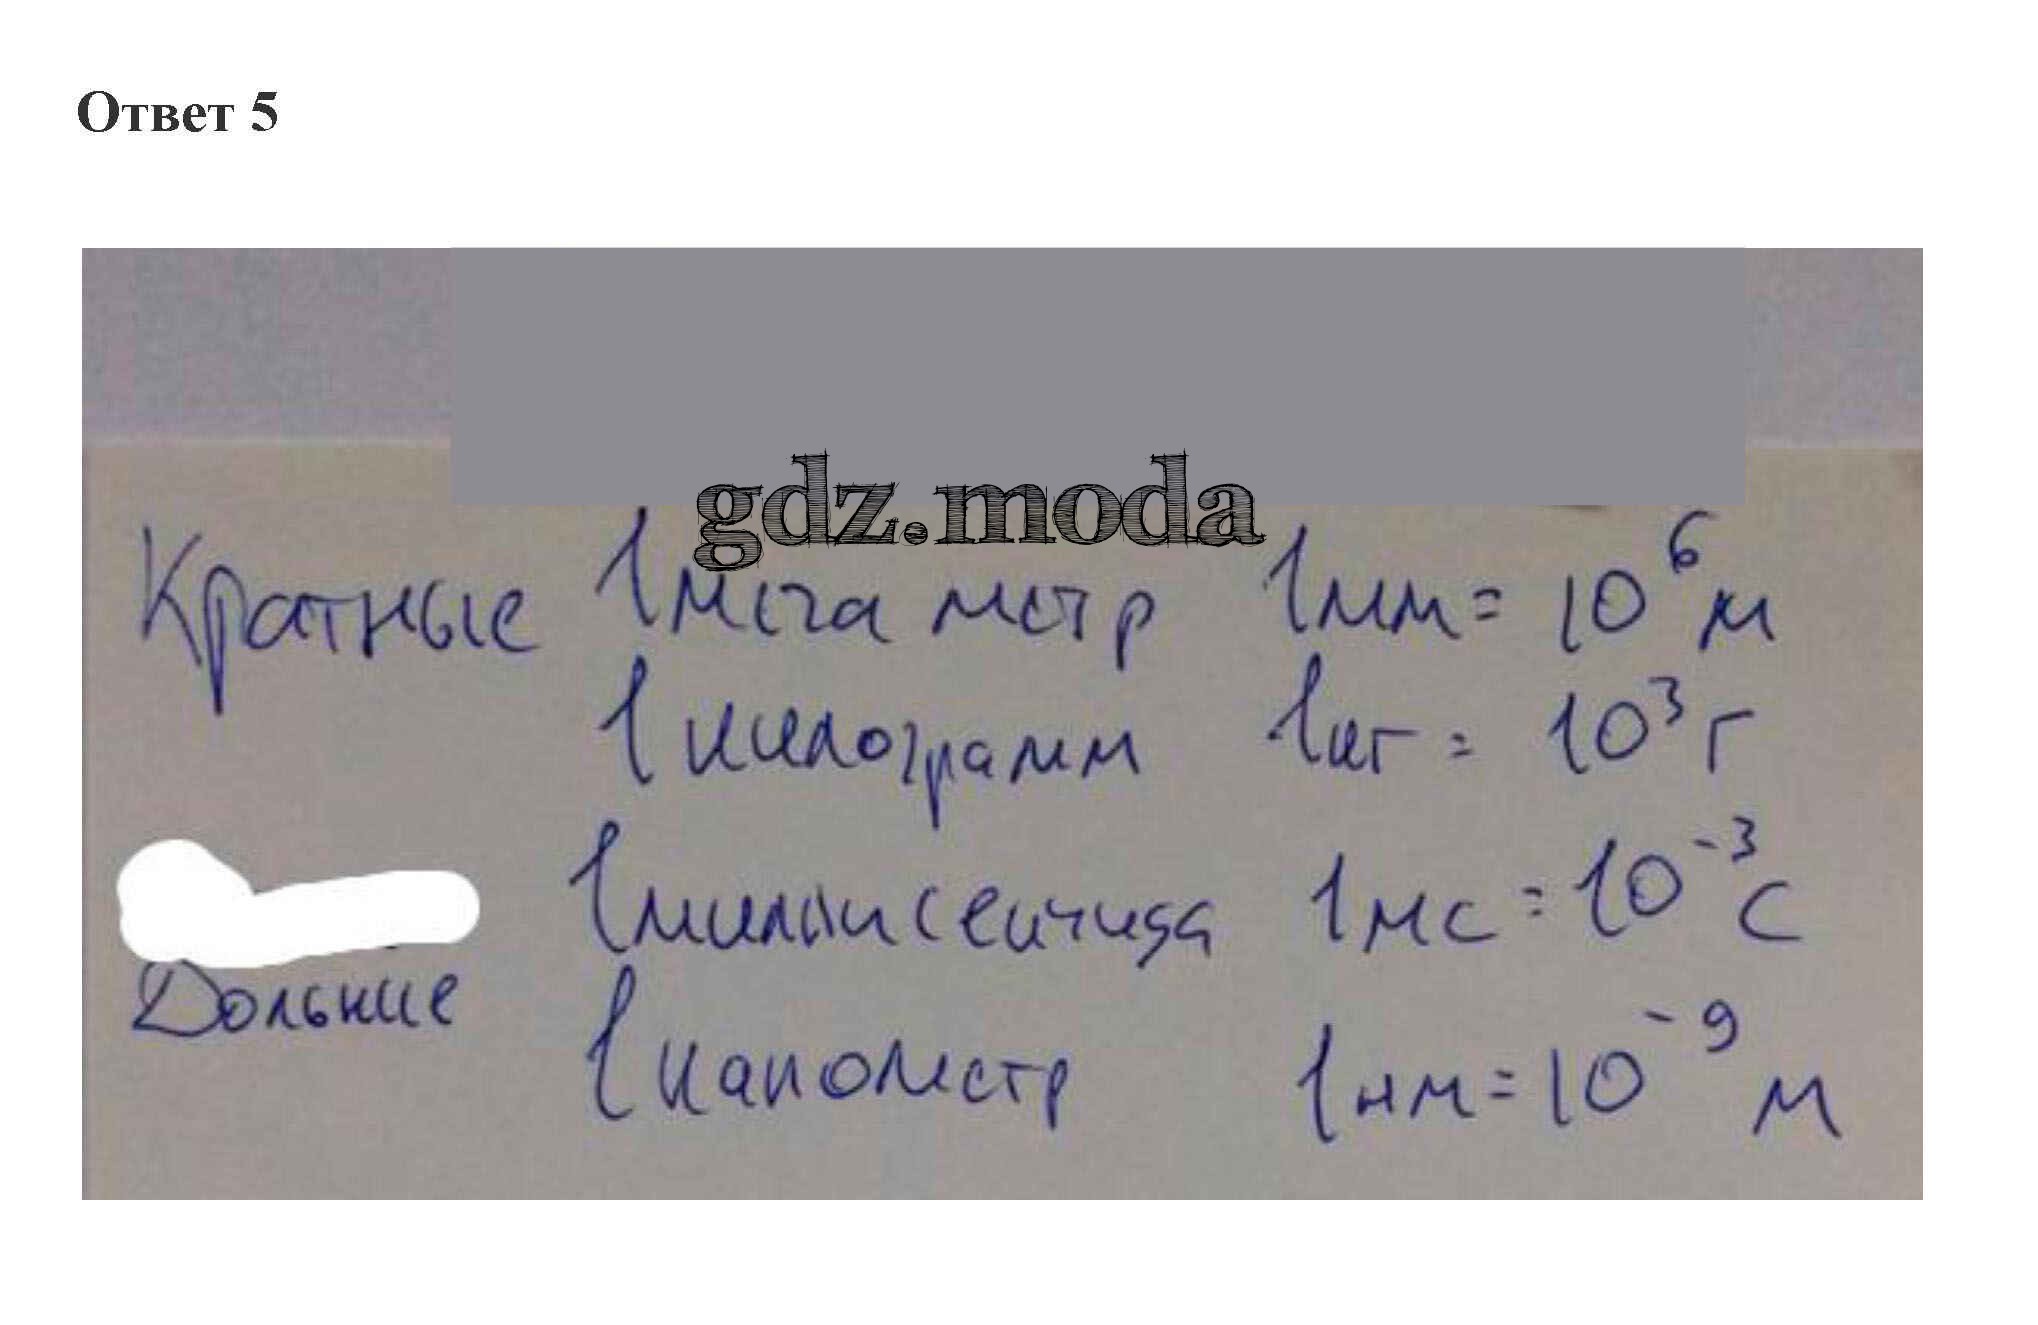 Ответ 5
gdz.moda
Кратные 1 мегаметр 1 мм = 10⁶ м
1 килограмм 1 кг = 10³ г
1 миллисекунда 1 мс = 10⁻³ с
Дольние 1 нанометр 1 нм = 10⁻⁹ м